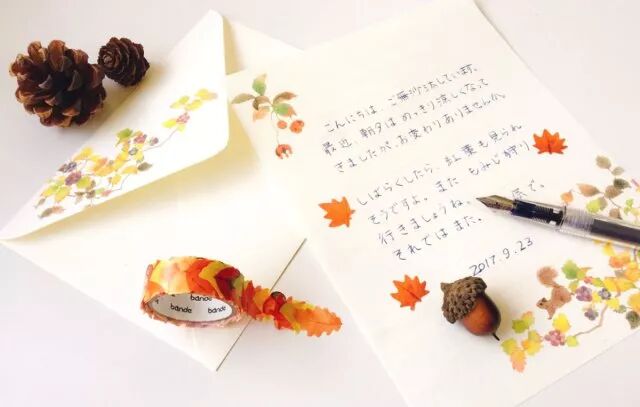 こんにちは。ご無沙汰しています。
最近、朝夕はめっきり涼しくなって
きましたが、お変わりありませんか。
しばらくしたら、紅葉も見られ
そうですよ。また もみじ狩り、
行きましょうね、で。
それでは また。
2017.9.23
bande
bande
bande